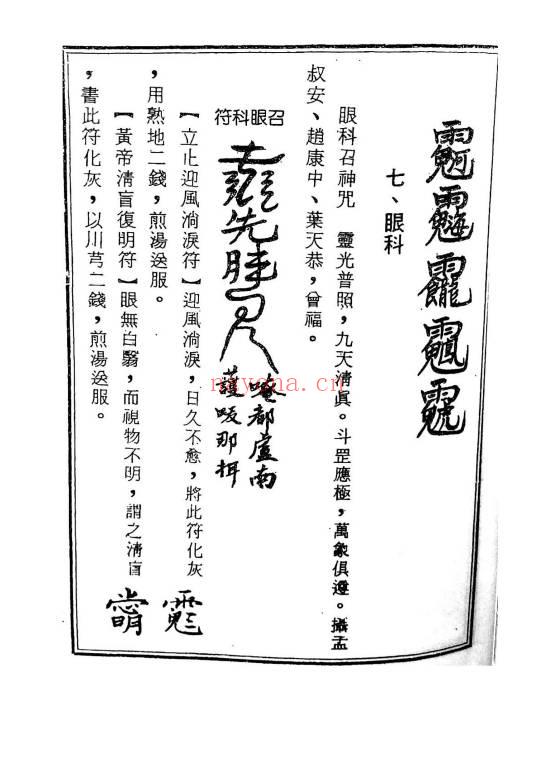 七、眼科
眼科召神咒　靈光普照，九天清眞。斗罡應極，萬象俱遵。攝孟
叔安、趙康中、葉天恭，曾福。
召眼科符
唵都盧南
護㖫那揖
【立止迎風淌淚符】迎風淌淚，日久不愈，將此符化灰
，用熟地二錢，煎湯送服。
【黃帝淸盲復明符】眼無白翳，而視物不明，謂之淸盲
，書此符化灰，以川芎二錢，煎湯送服。
nayona.cn